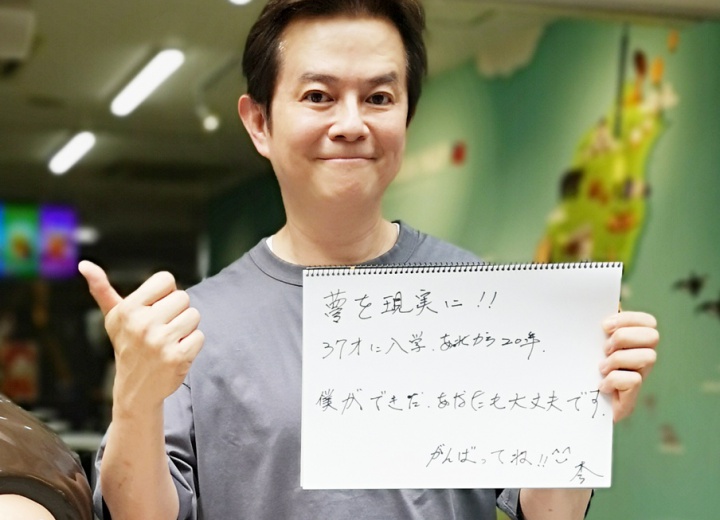 夢を現実に!!
37才に入学、あれから20年、
僕ができた、あなたも大丈夫です。
がんばってね!!^^